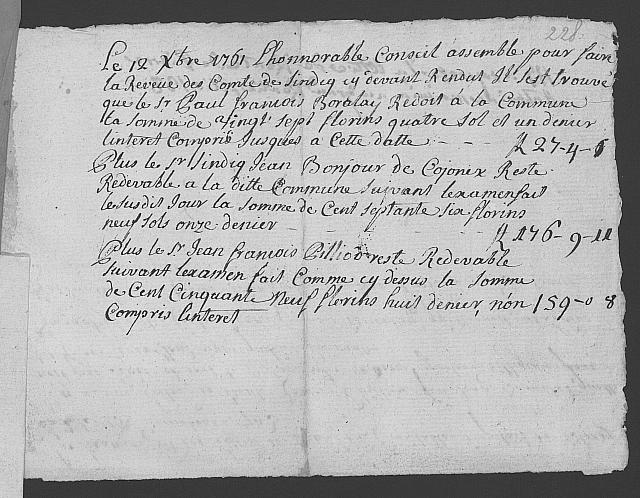 228.
Le 12 Xbre 1761 Lhonnorable Conseil assemble pour faire
la Reveüe des Comte de Sindiq cy devant Rendus Il sest trouvé
que le Sr Paul francois Redoit á la Commune
la somme de Vingt sept florins quatre sol et un denier
linteret Compris Jusques a Cette datte - - - £ 27-4-1
Plus le Sr Sindiq Jean Bonjour de Cojonex Reste
Redevable a la ditte Commune suivant lexamen fait
le susdit Jour la somme de Cent septante six florins
neuf sols onze denier - - - £ 176-9-11
Plus le Sr Jean francois Pilliod reste Redevable
suivant lexamen fait Comme cy dessus la somme
de Cent Cinquante Neuf florins huit denier, non 159-0 8
Compris linteret